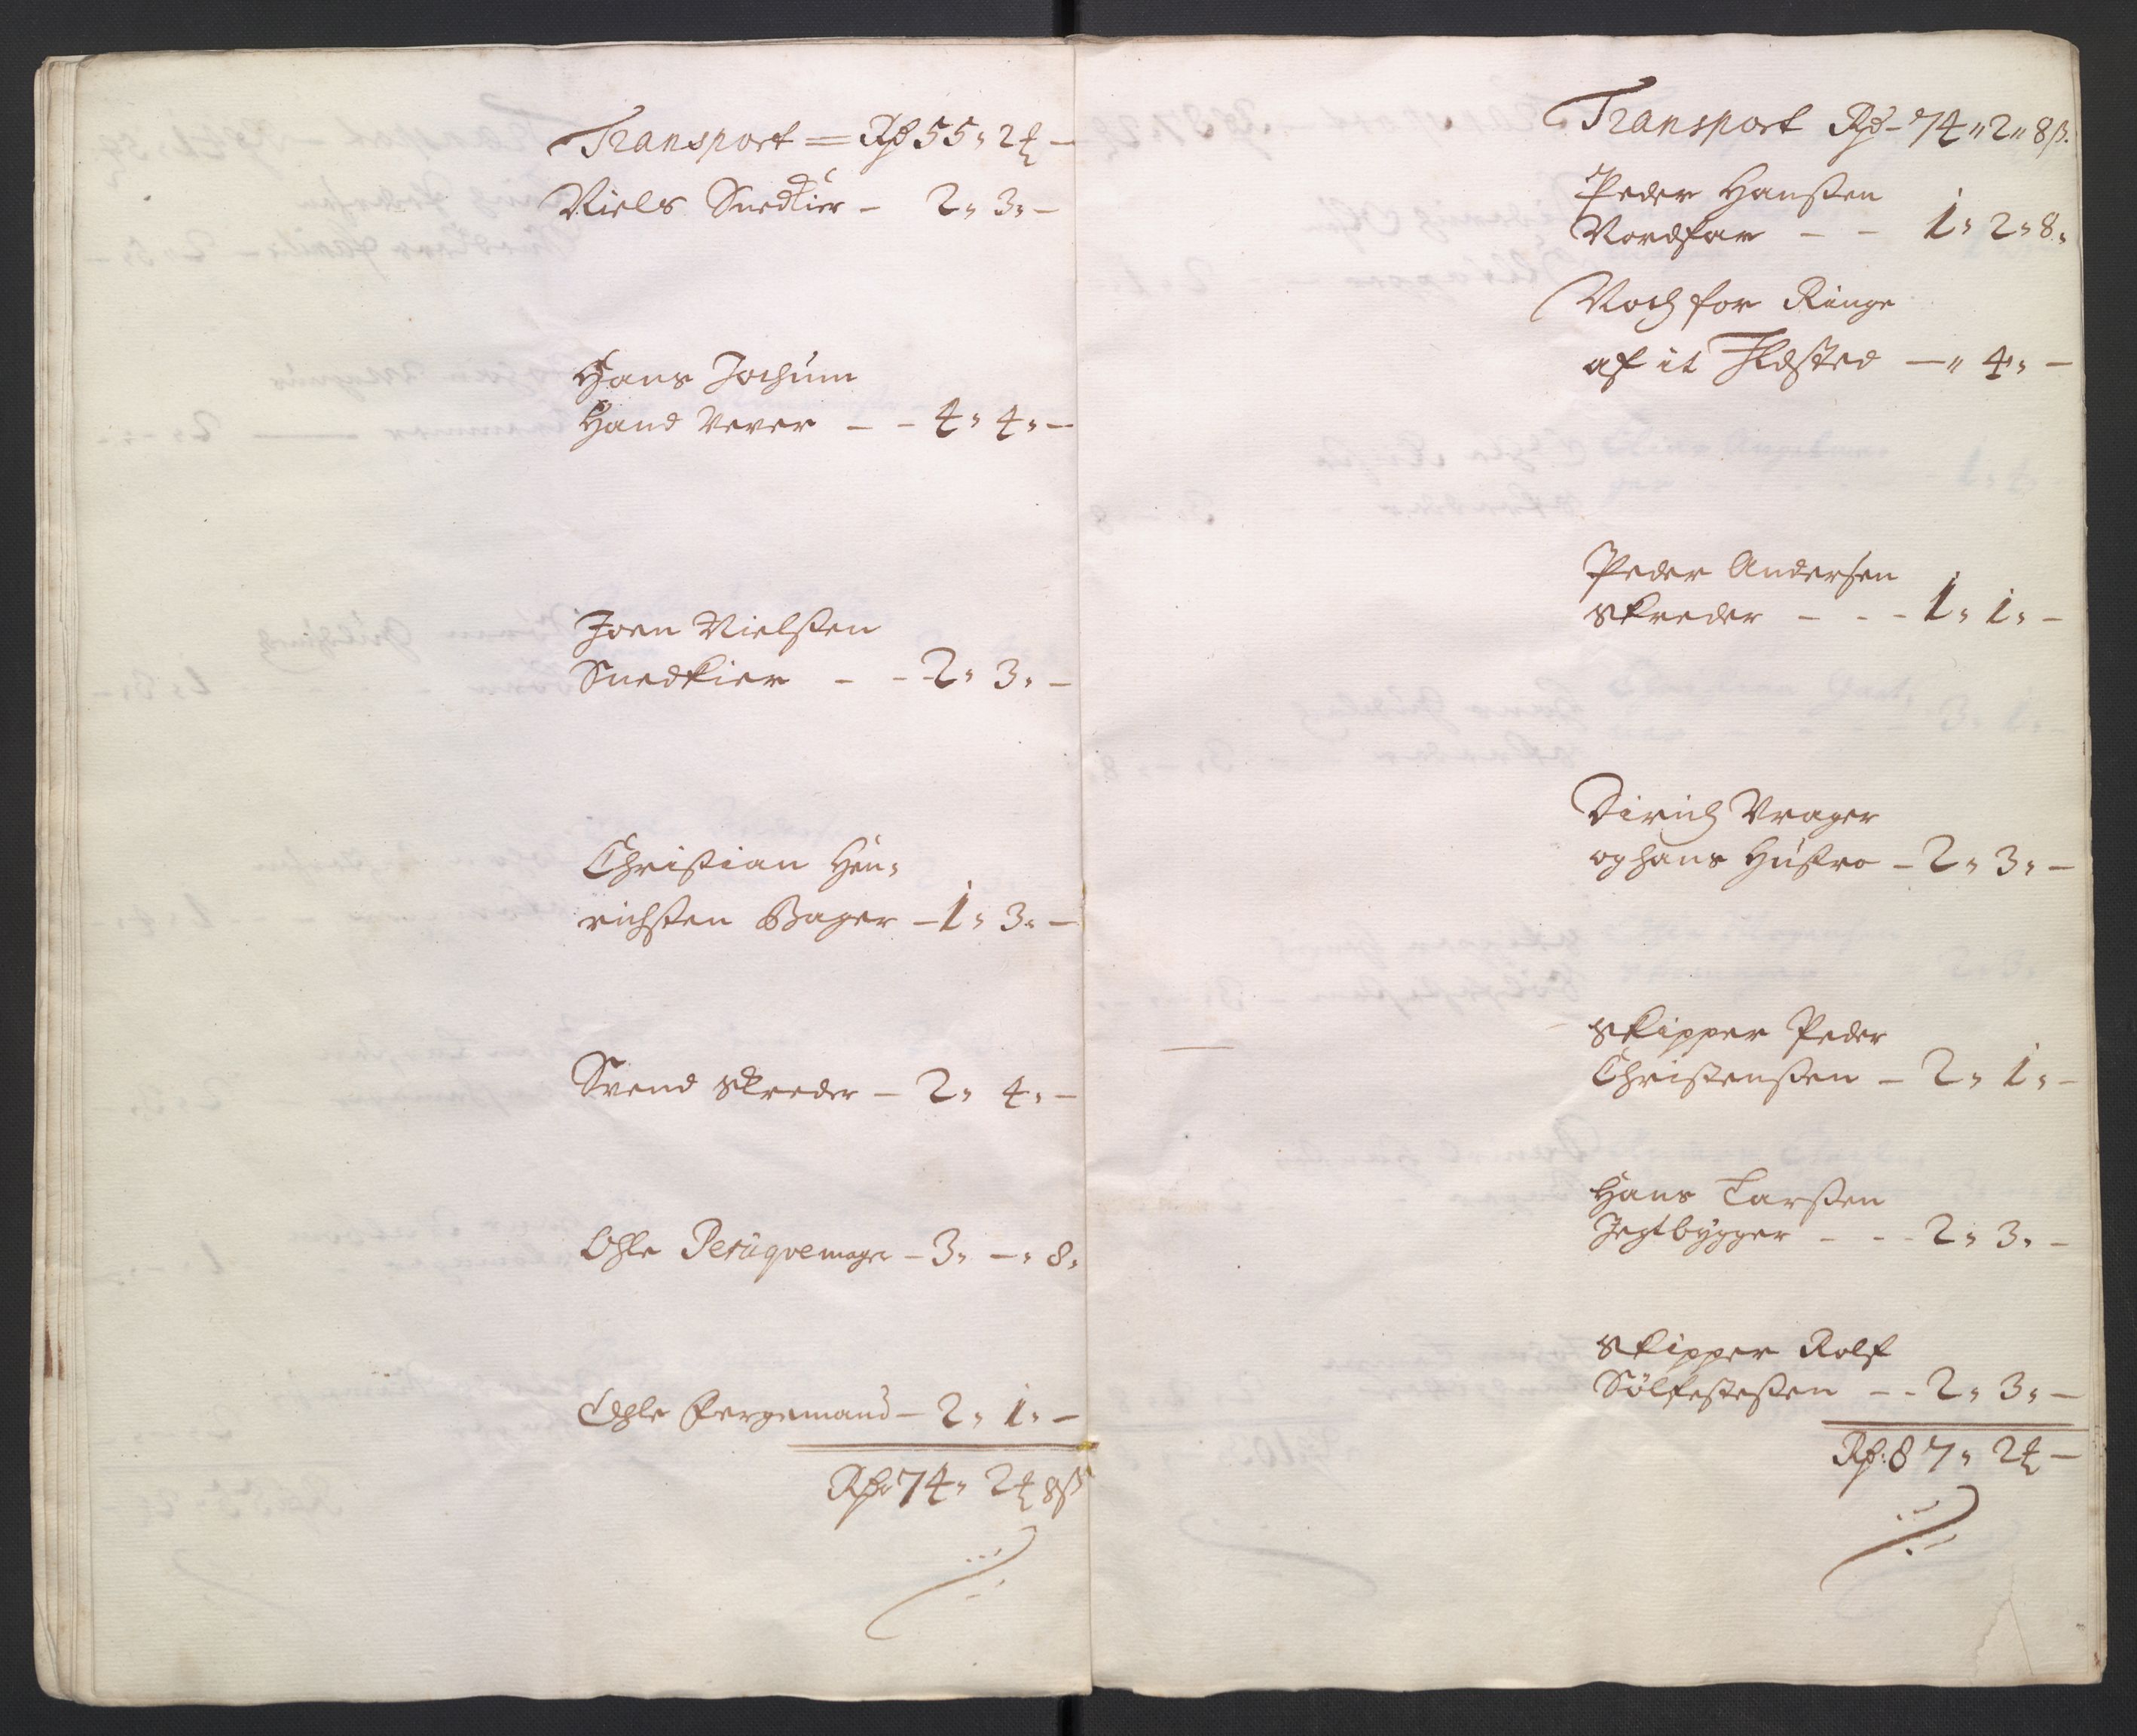 Transport = Rd 55 " 2 ℔ -
Niels Snedkier - 2 " 3 " -
Hans Jochum
Hand Vever - - 4 " 4 " -
Joen Nielsen
Snedkier - - - 2 " 3 " -
Christian Hen,
richsen Bager - 1 " 3 " -
Svend Skreder - 2 " 4 " -
Ohle Peruqvemager - 3 " - " 8 "
Ohle Fergemand - 2 " 1 " -
Rd 74 " 2 ℔ 8 ß
Transport Rd - 74 " 2 " 8 ß.
Peder Hanssen
Nordfar - - 1 " 2 " 8 "
Noch for Ringe
af it Ildsted - " 4 " -
Peder Andersen
Skreder - - - 1 " 1 " -
Dirich Vrager
og hans Hustro - 2 " 3 " -
Skipper Peder
Christensen - 2 " 1 " -
Hans Larssen
Jegtbygger - - - 2 " 3 " -
Skipper Rolf
Sölfestessen - - 2 " 3 " -
Rd: 87 " 2 ℔ -